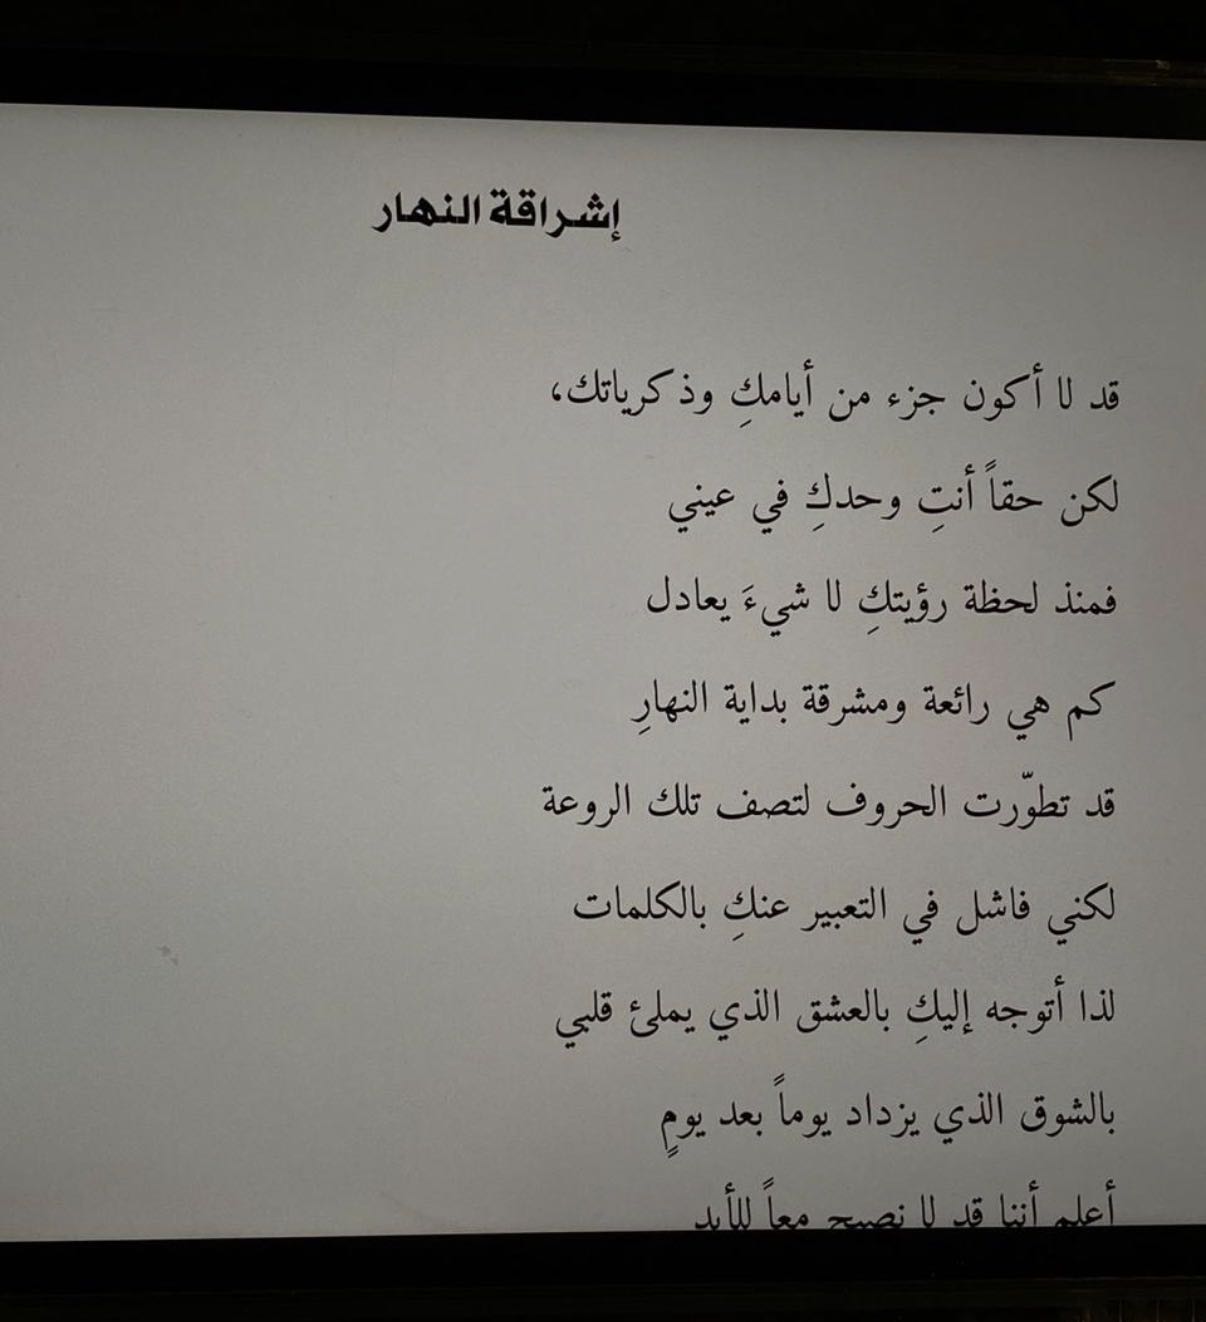 إشراقة النهار
قد لا أكون جزء من أيامكِ وذكرياتك،
لكن حقاً أنتِ وحدكِ في عيني
فمنذ لحظة رؤيتكِ لا شيءَ يعادل
كم هي رائعة ومشرقة بداية النهارِ
قد تطوّرت الحروف لتصف تلك الروعة
لكني فاشل في التعبير عنكِ بالكلمات
لذا أتوجه إليكِ بالعشق الذي يملئ قلبي
بالشوق الذي يزداد يوماً بعد يومٍ
أعلم أننا قد لا نصبح معاً للأبد